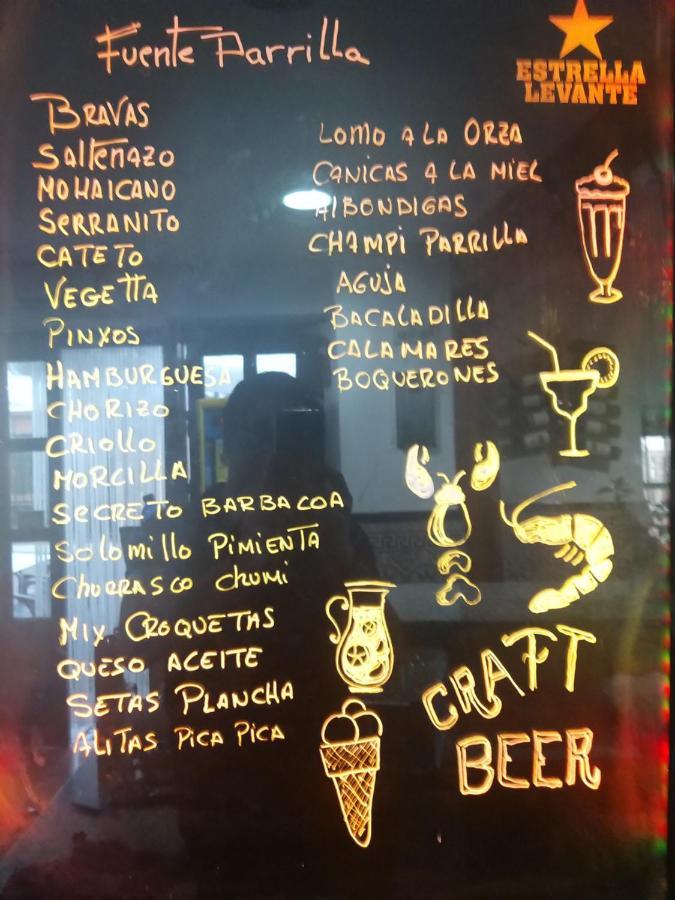 Fuente Parrilla
ESTRELLA
LEVANTE
BRAVAS
SALTEÑAZO
MOHAICANO
SERRANITO
CATETO
VEGETTA
PINXOS
HAMBURGUESA
CHORIZO
CRIOLLO
MORCILLA
SECRETO BARBACOA
Solomillo PIMIENTA
CHURRASCO CHUMI
MIX CROQUETAS
QUESO ACEITE
SETAS PLANCHA
ALITAS PICA PICA
LOMO A LA ORZA
CANICAS A LA MIEL
AlBONDIGAS
CHAMPI PARRILLA
AGUJA
BACALADILLA
CALAMARES
BOQUERONES
CRAFT
BEER